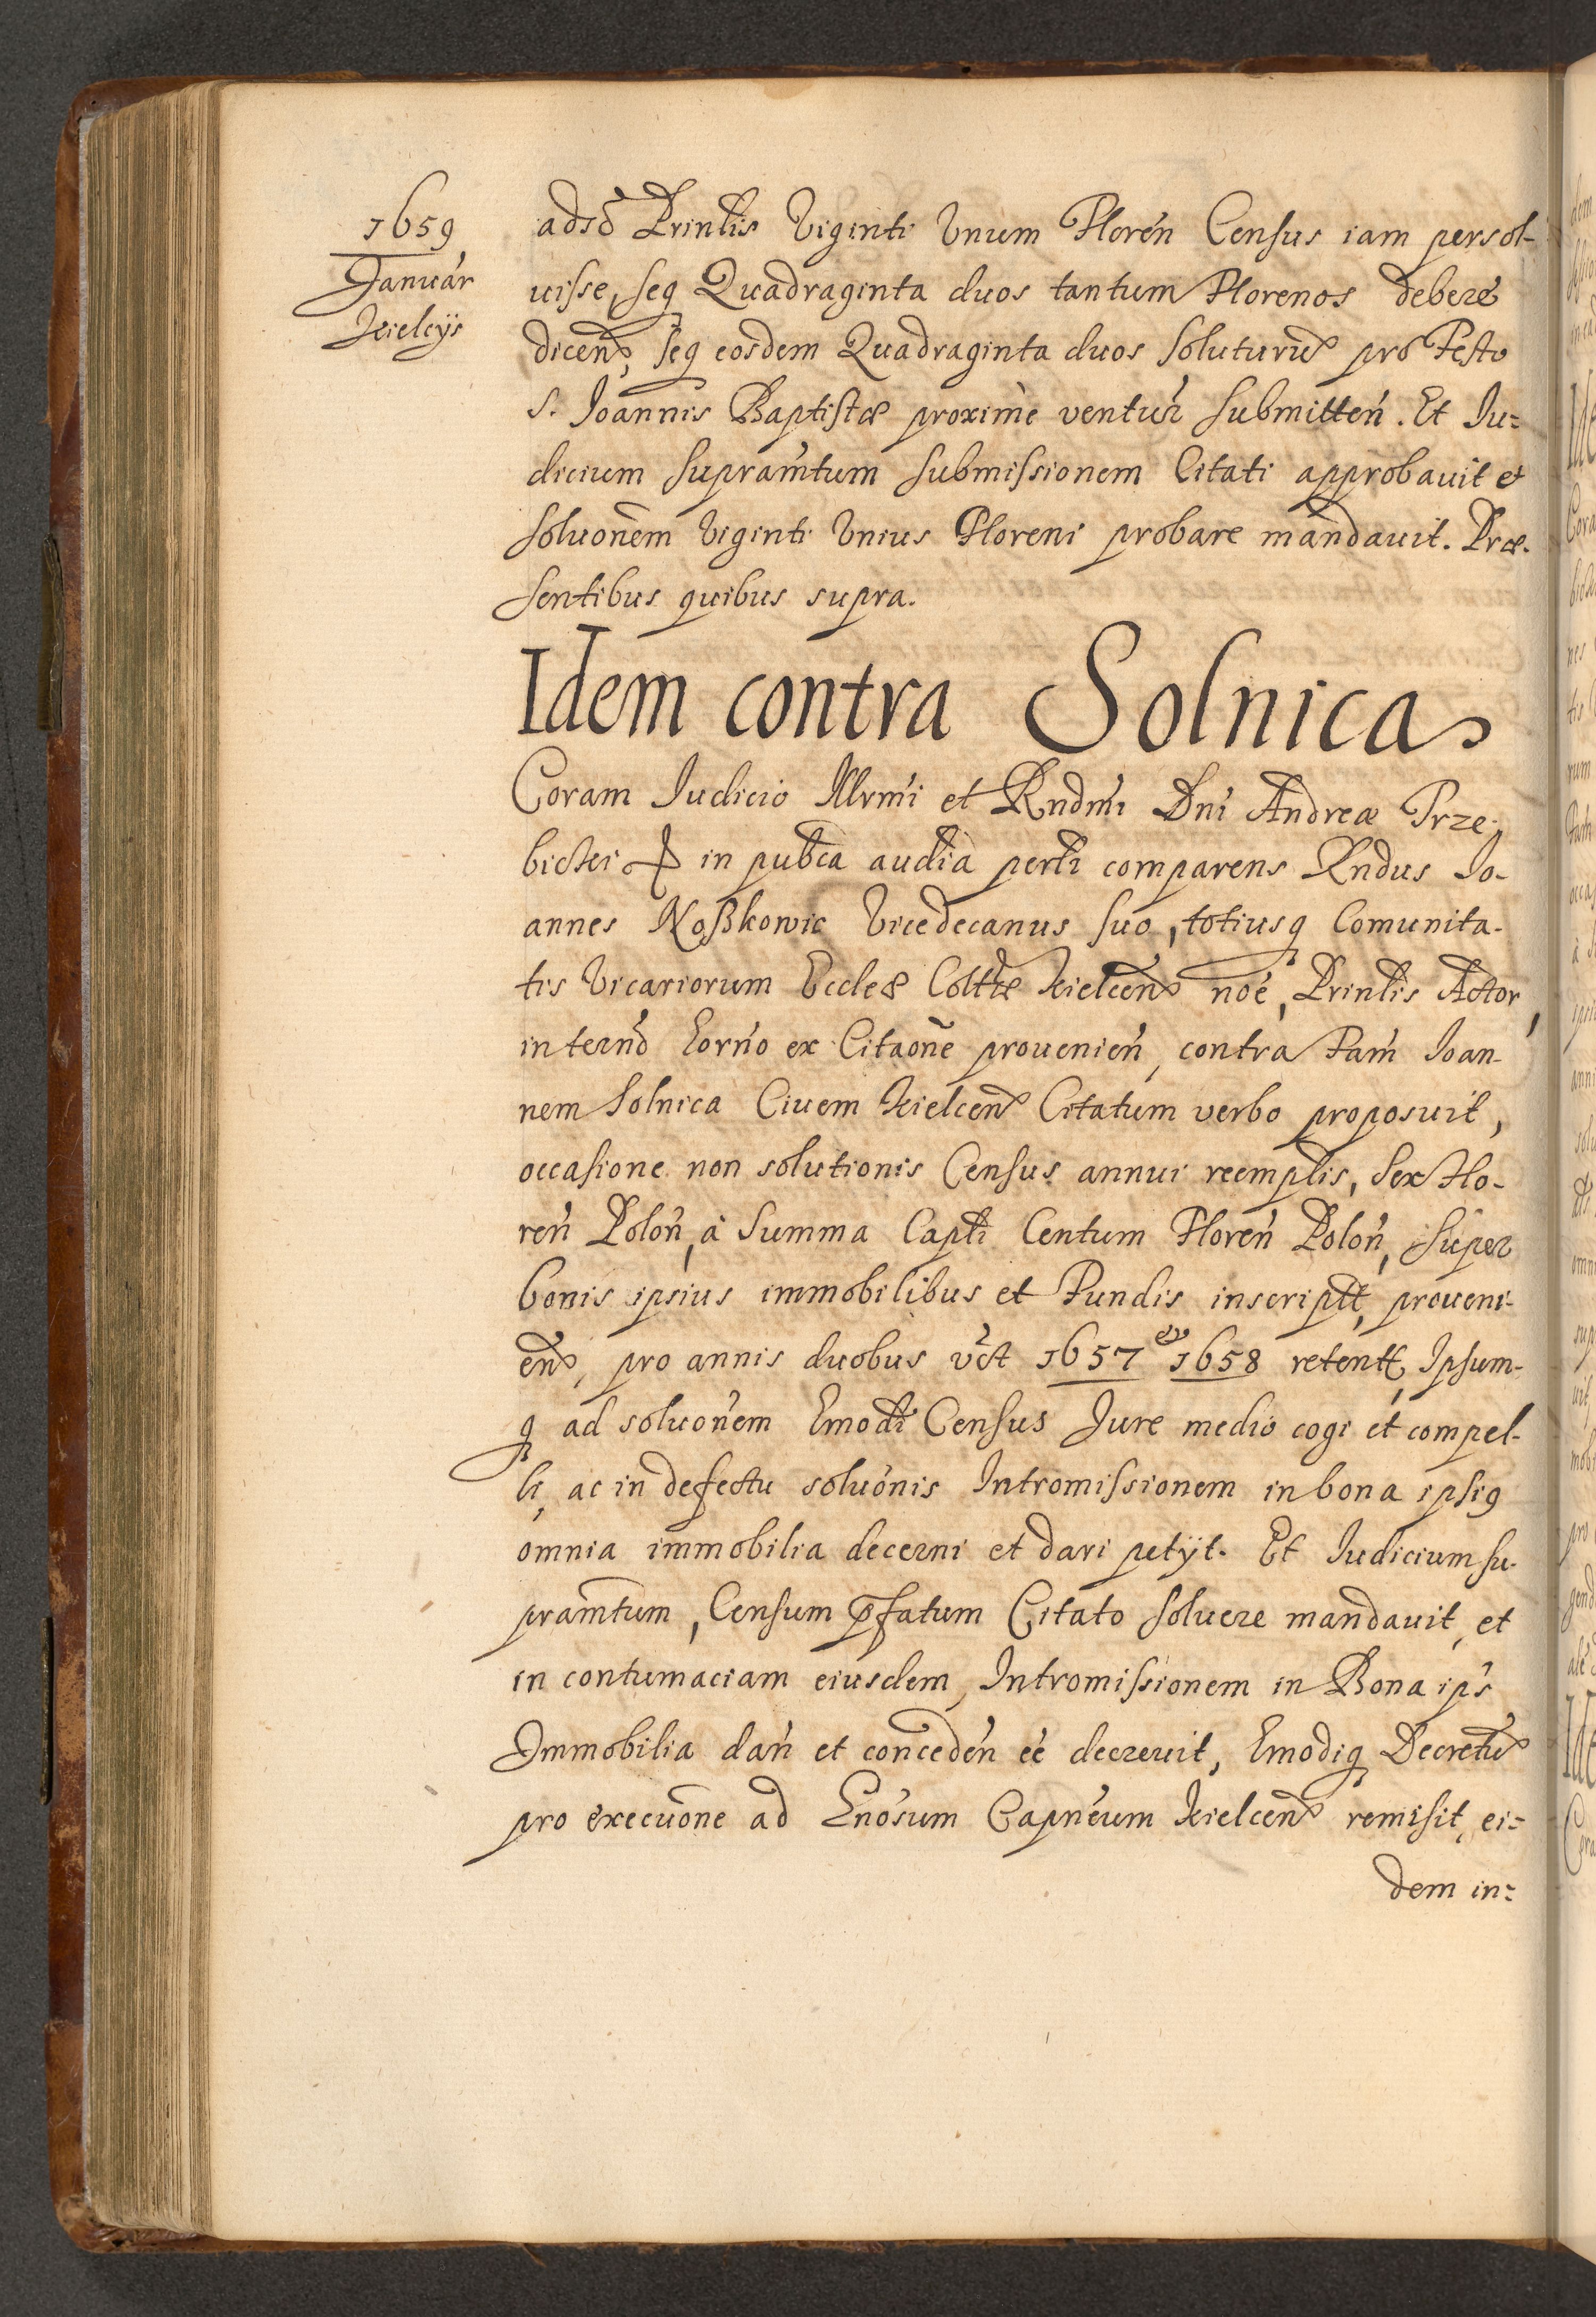 1659
Január
Kielcÿs
adsō Prinłis Viginti Vnum Florén Census iam persol-
uisse, seq Quadraginta duos tantum Florenos debere
dicen̄, seq eosdem Quadraginta duos soluturū pro Festo
S. Joannis Baptistæ proximè ventur submitten̄. Et Ju=
dicium supram̄tum submissionem Citati approbauit et
soluōnem Viginti Vnius Floreni probare mandauit. Præ-
sentibus quibus supra.
Idem contra Solnica
Coram Judicio Illrm̄i et Rndm̄i Dn̄i Andreæ Trze-
bicki in pub̄ca audīa perłr comparens Rndus Jo-
annes Noßkowic Vicedecanus suo, totiusq Comunita-
tis Vicariorum Eccłæ Cołłtæ Kielcen̄ noē, Prinłis Actor,
in tern̄o hor̄no ex Citaōne prouenien̄, contra Fam̄ Joan-
nem Solnica Ciuem Kielcen̄ Citatum verbo proposuit,
occasione non solutionis Census annui reempłis, Sex Flo-
ren̄ Polon̄, à Summa Capłi Centum Floren̄ Polon̄, super
bonis ipsius immobilibus et Fundis inscriptt, proueni-
en̄, pro annis duobus vc̄t 1657 et 1658 retentt, Ipsum-
q ad soluōnem Emōdi Census Jure medio cogi et compel-
li, ac in defectu soluōnis Intromissionem in bona ipsiq
omnia immobilia decerni et dari petÿt. Et Judicium su-
pram̄tum, Censum p̄fatum Citato soluere mandauit, et
in contumaciam eiusdem, Intromissionem in Bona ip̄s
Immobilia dan̄ et conceden̄ eē decreuit, Emodiq Decretū
pro execuōne ad Gn̄osum Capn̄eum Kielcen̄ remisit, ei=
dem in=